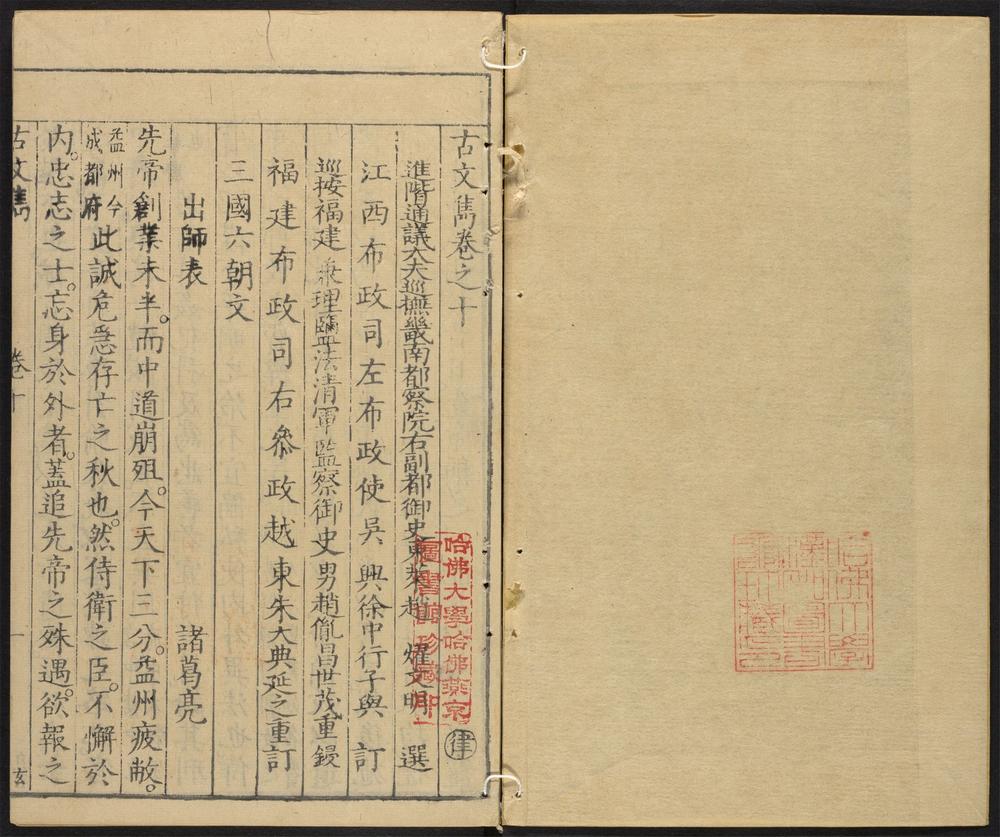 古文雋卷之十
進階通議大夫巡撫畿南都察院右副都御史東萊趙 燿文明 選
江西布政司左布政使吳興徐中行子與 訂
巡按福建兼理鹽法清軍監察御史男趙胤昌世茂重鋟
福建布政司右叅政越東朱大典延之重訂
三國六朝文
出師表 諸葛亮
先帝創業未半。而中道崩殂。今天下三分。益州疲敝。
益州今
成都府
此誠危急存亡之秋也。然侍衛之臣。不懈於
內。忠志之士。忘身於外者。蓋追先帝之殊遇。欲報之
古文雋 卷十 一
律
哈佛大學哈佛燕京
圖書館珍藏印